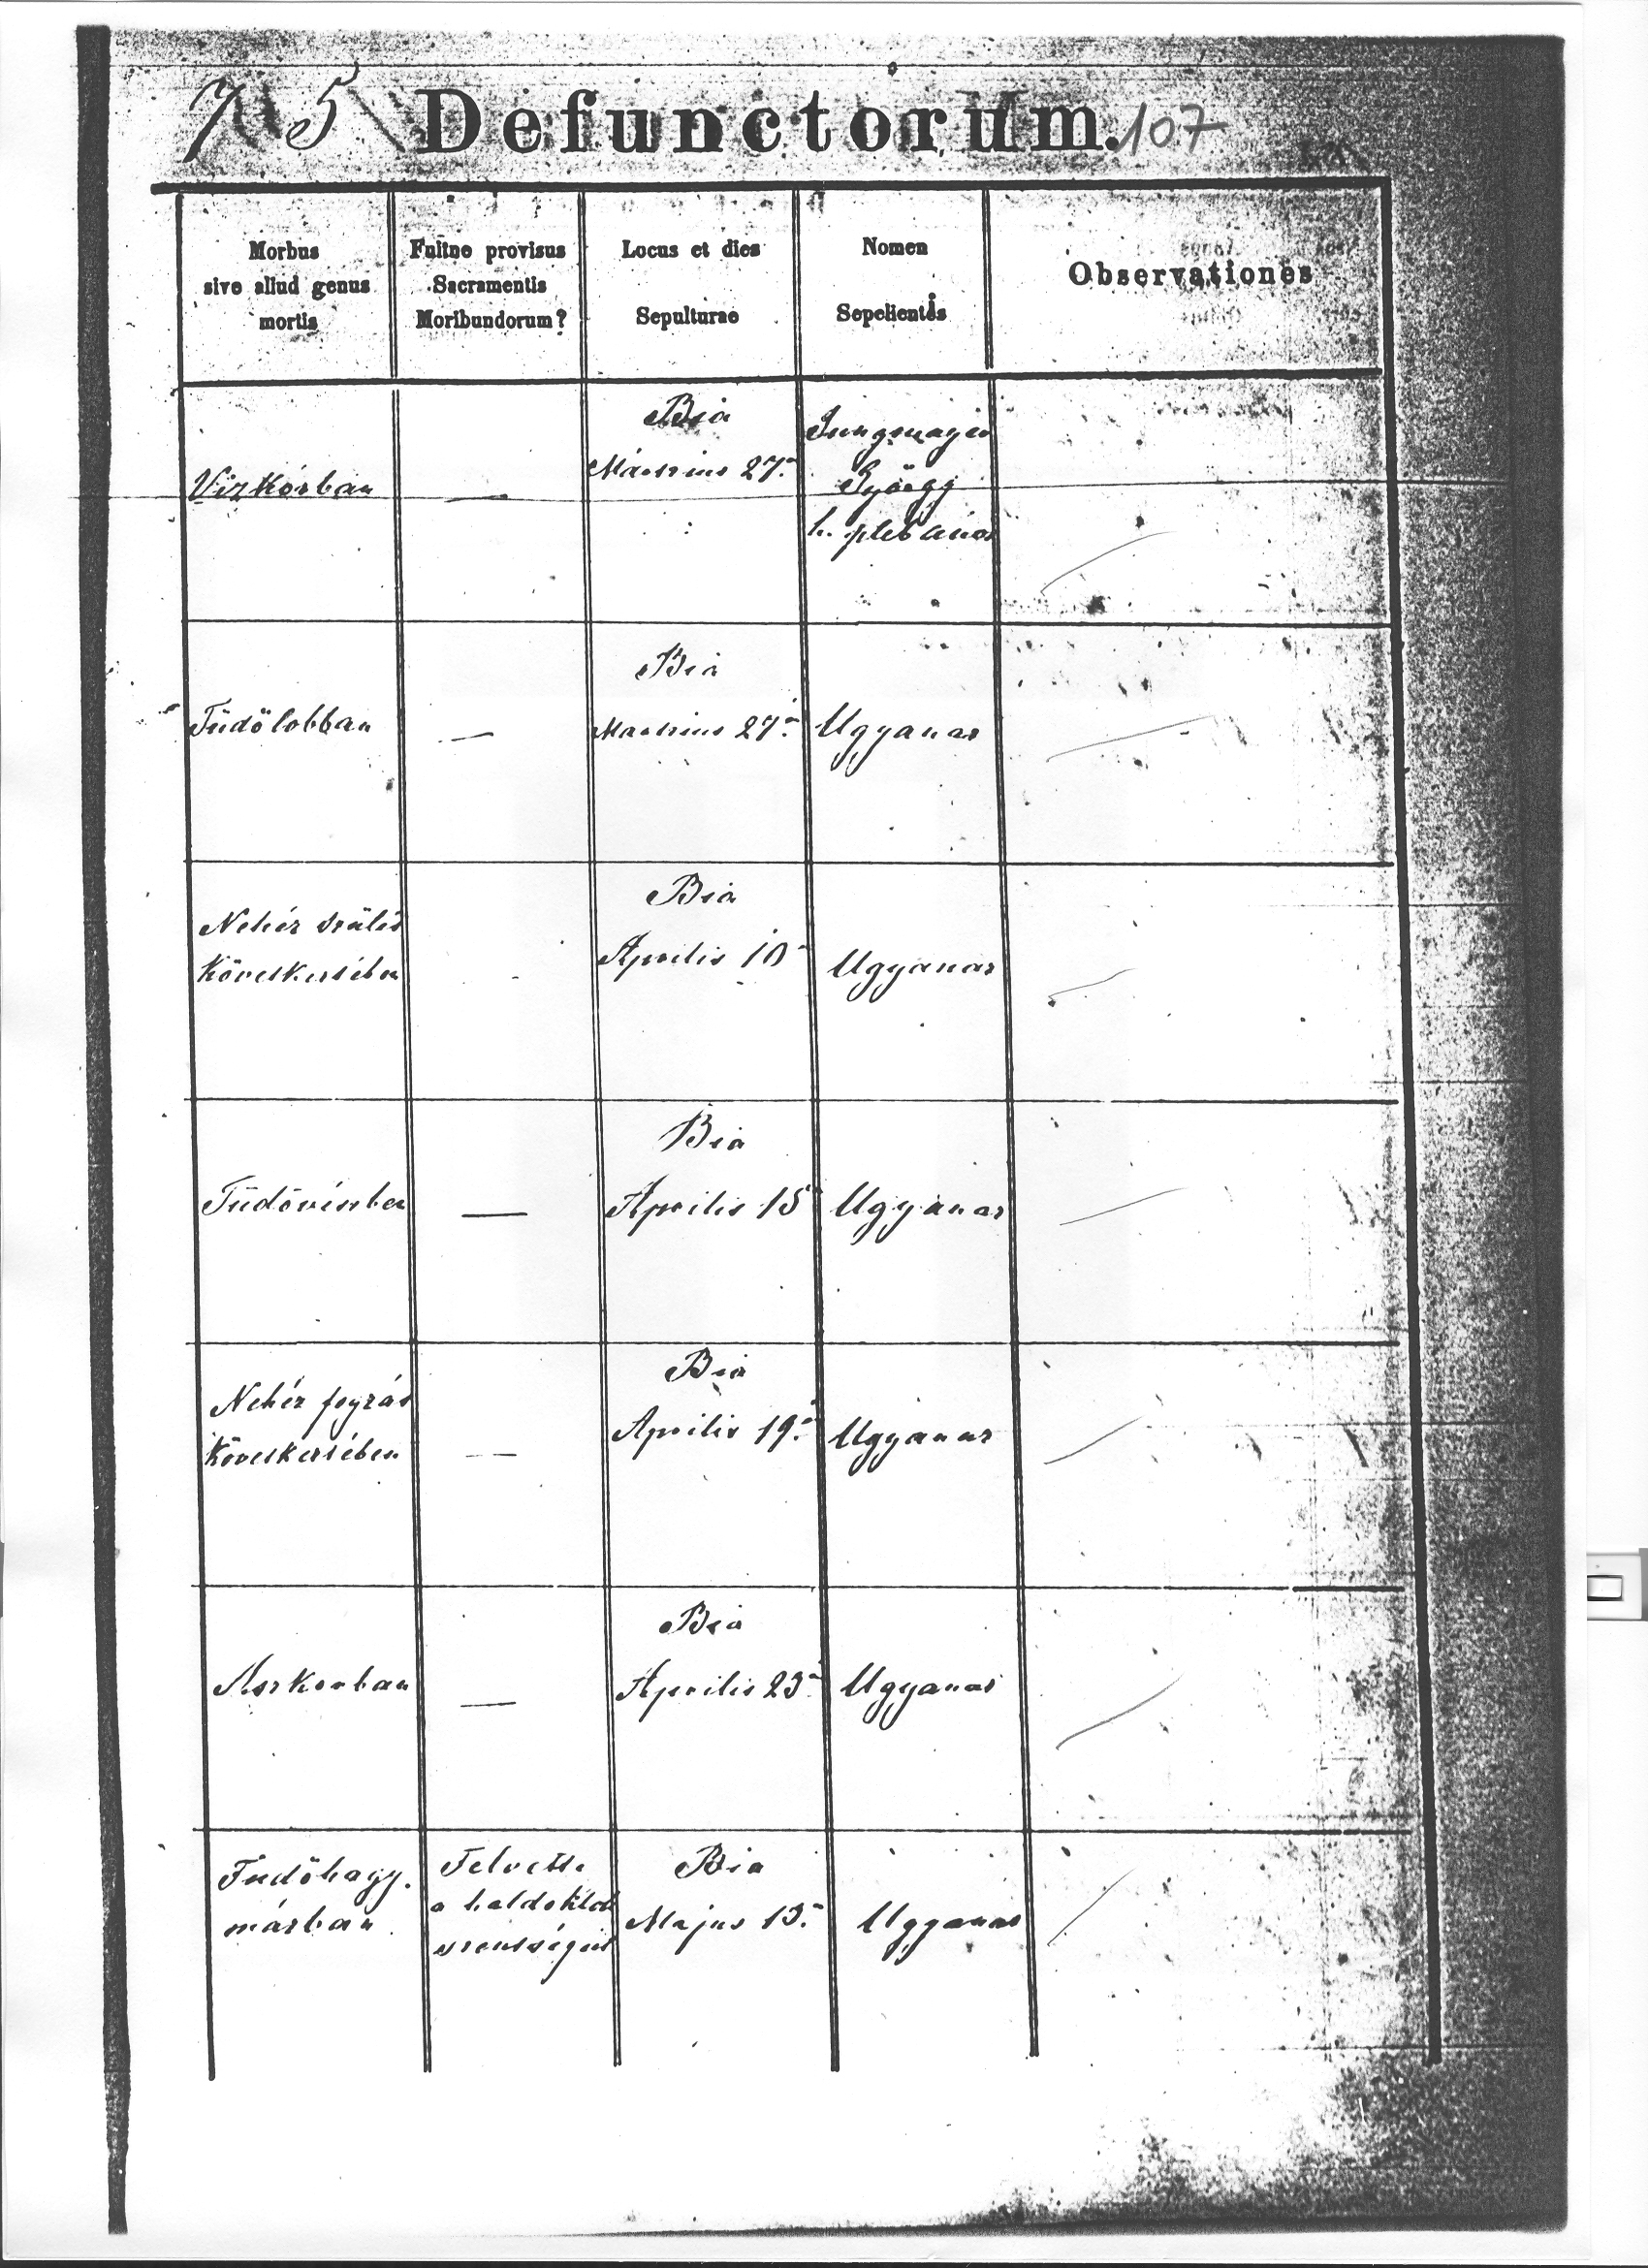 75
Defunctorum. 107
Morbus
sive aliud genus
mortis
Fuitne provisus
Sacramentis
Moribundorum?
Locus et dies
Sepulturae
Nomen
Sepelientis
Observationes
Vizkórban
—
Bia
Márczius 27.
Jungmayer
György
h. plebános
Tüdőlobban
—
Bia
Marczius 27.
Ugyanaz
Nehéz szülés
Következtében
Bia
Április 10
Ugyanaz
Tüdővészben
—
Bia
Április 15
Ugyanaz
Nehéz fogzás
Következtében
—
Bia
Április 19.
Ugyanaz
Aszkorban
—
Bia
Április 23.
Ugyanaz
Tüdőhagy.
mázban
Felvette
a haldoklok
szentségeit
Bia
Majus 13.
Ugyanaz